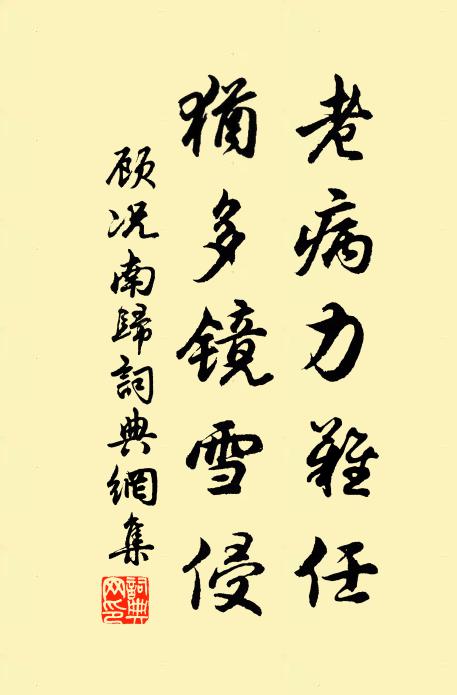 老病力難任
猶多鏡雪侵
顧况南歸詞典網集
詞典網印